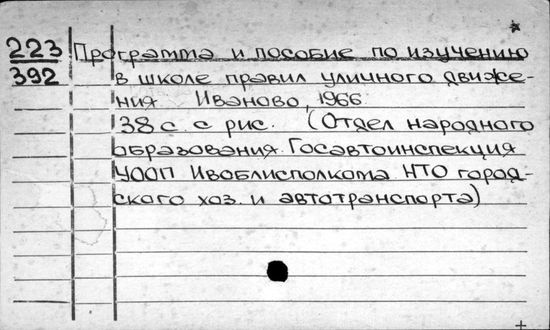 223 Программа и пособие по изучению
392 в школе правил уличного движе-
ния Иваново, 1966
38 с. с рис. (Отдел народного
образования. Госавтоинспекция
УООП Ивоблисполкома НТО город-
ского хоз. и автотранспорта)